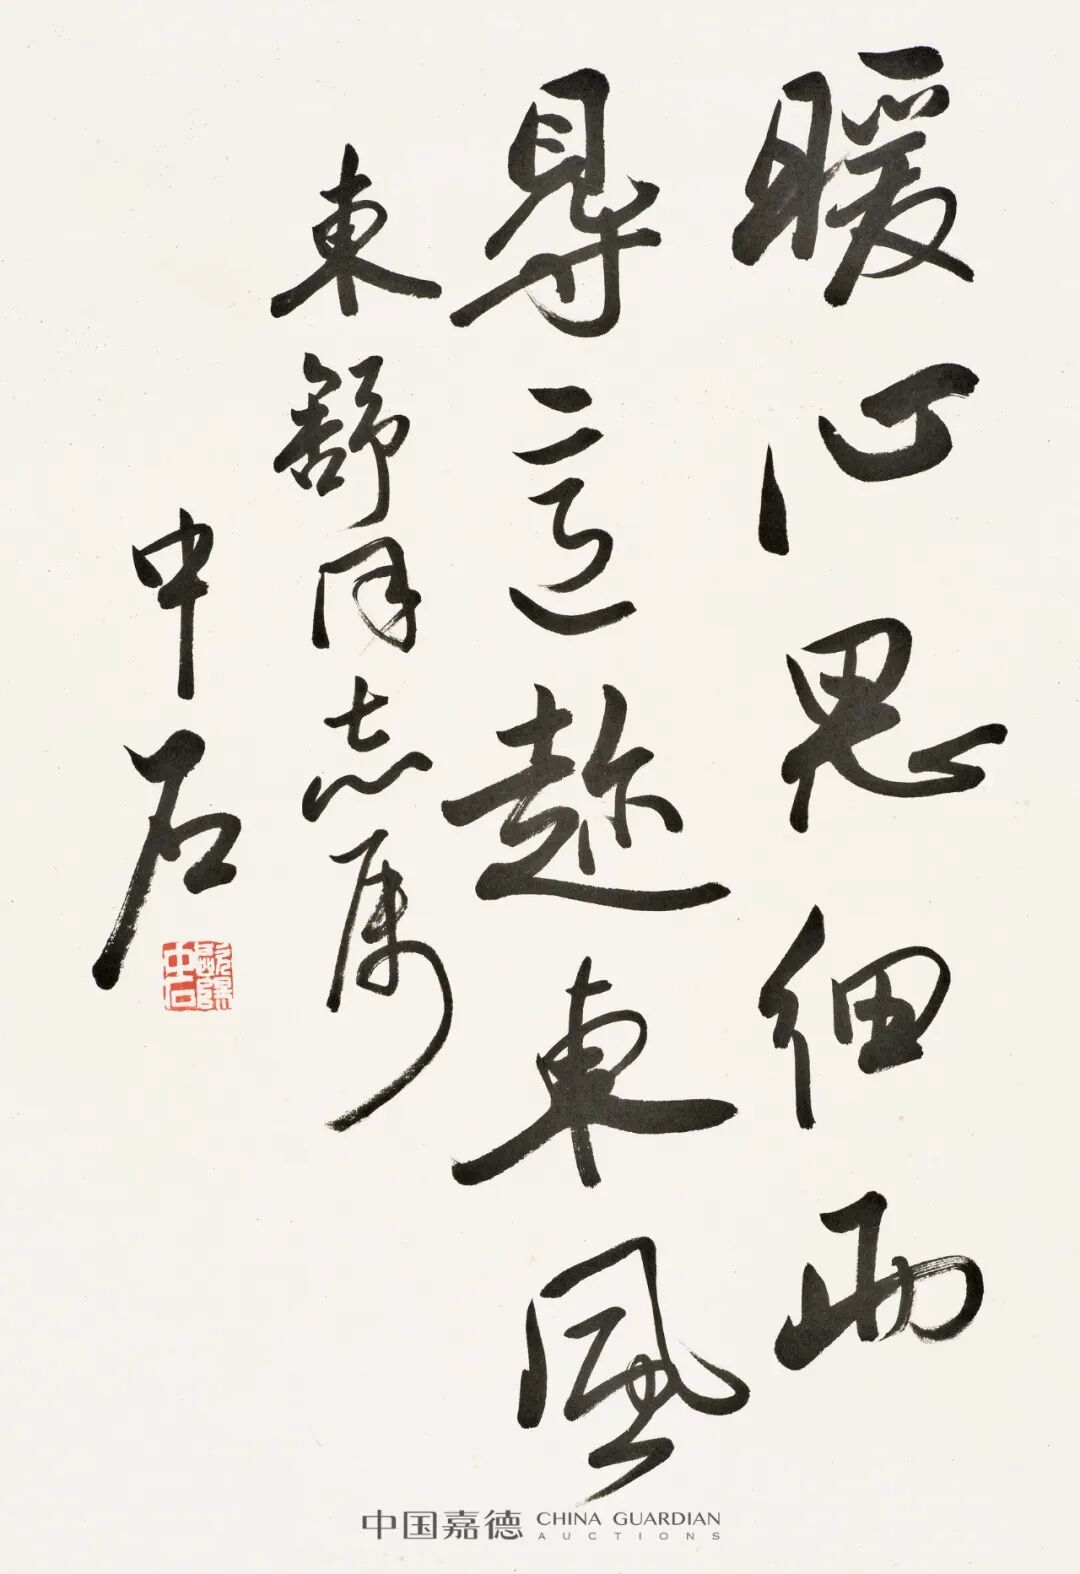 暖心思細雨
得意趁東風
東舒同志属
中石
歐陽中石
中国嘉德 CHINA GUARDIAN
AUCTIONS